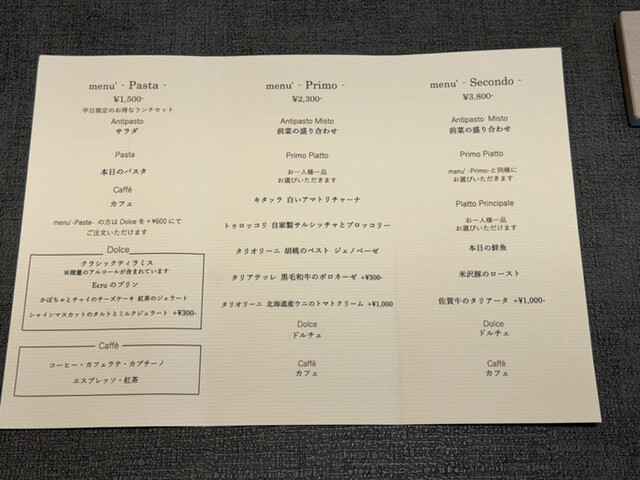 menu' - Pasta -
¥1,500-
平日限定のお得なランチセット
Antipasto
サラダ
Pasta
本日のパスタ
Caffè
カフェ
menu'-Pasta- の方は Dolce を +¥600にて
ご注文いただけます
Dolce
クラシックティラミス
※微量のアルコールが含まれています
Ecru のプリン
かぼちゃとチャイのチーズケーキ 紅茶のジェラート
シャインマスカットのタルトとミルクジェラート +¥300-
Caffè
コーヒー・カフェラテ・カプチーノ
エスプレッソ・紅茶
menu' - Primo -
¥2,300-
Antipasto Misto
前菜の盛り合わせ
Primo Piatto
お一人様一品
お選びいただきます
キタッラ 白いアマトリチャーナ
トゥロッコリ 自家製サルシッチャとブロッコリー
タリオリーニ 胡桃のペスト ジェノベーゼ
タリアテッレ 黒毛和牛のボロネーゼ +¥300-
タリオリーニ 北海道産ウニのトマトクリーム +¥1,000
Dolce
ドルチェ
Caffè
カフェ
menu' - Secondo -
¥3,800-
Antipasto Misto
前菜の盛り合わせ
Primo Piatto
menu' -Primo-と同様に
お選びいただきます
Piatto Principale
お一人様一品
お選びいただけます
本日の鮮魚
米沢豚のロースト
佐賀牛のタリアータ +¥1,000-
Dolce
ドルチェ
Caffè
カフェ